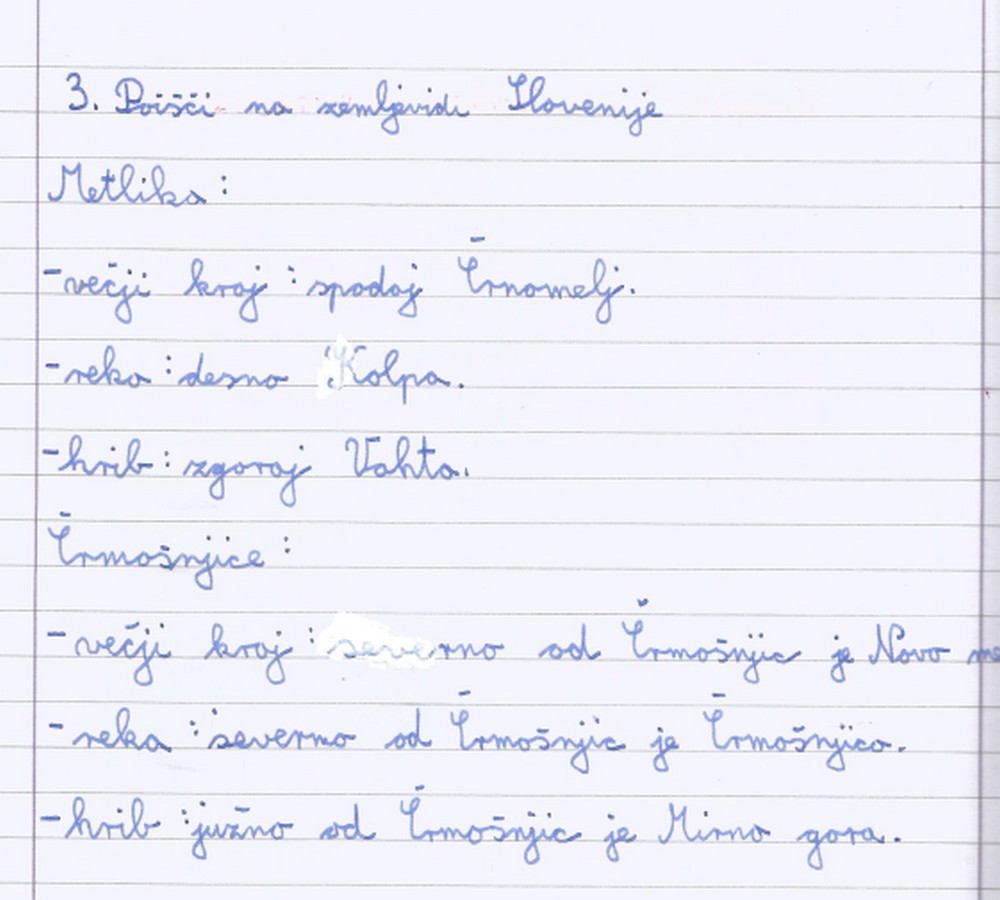 3. Poišči na zemljevidu Slovenije
Metlika:
-večji kraj: spodaj Črnomelj.
-reka: desno Kolpa.
-hrib: zgoraj Vahta.
Črmošnjice:
-večji kraj: severno od Črmošnjic je Novo me
-reka: severno od Črmošnjic je Črmošnjica.
-hrib: južno od Črmošnjic je Mirna gora.